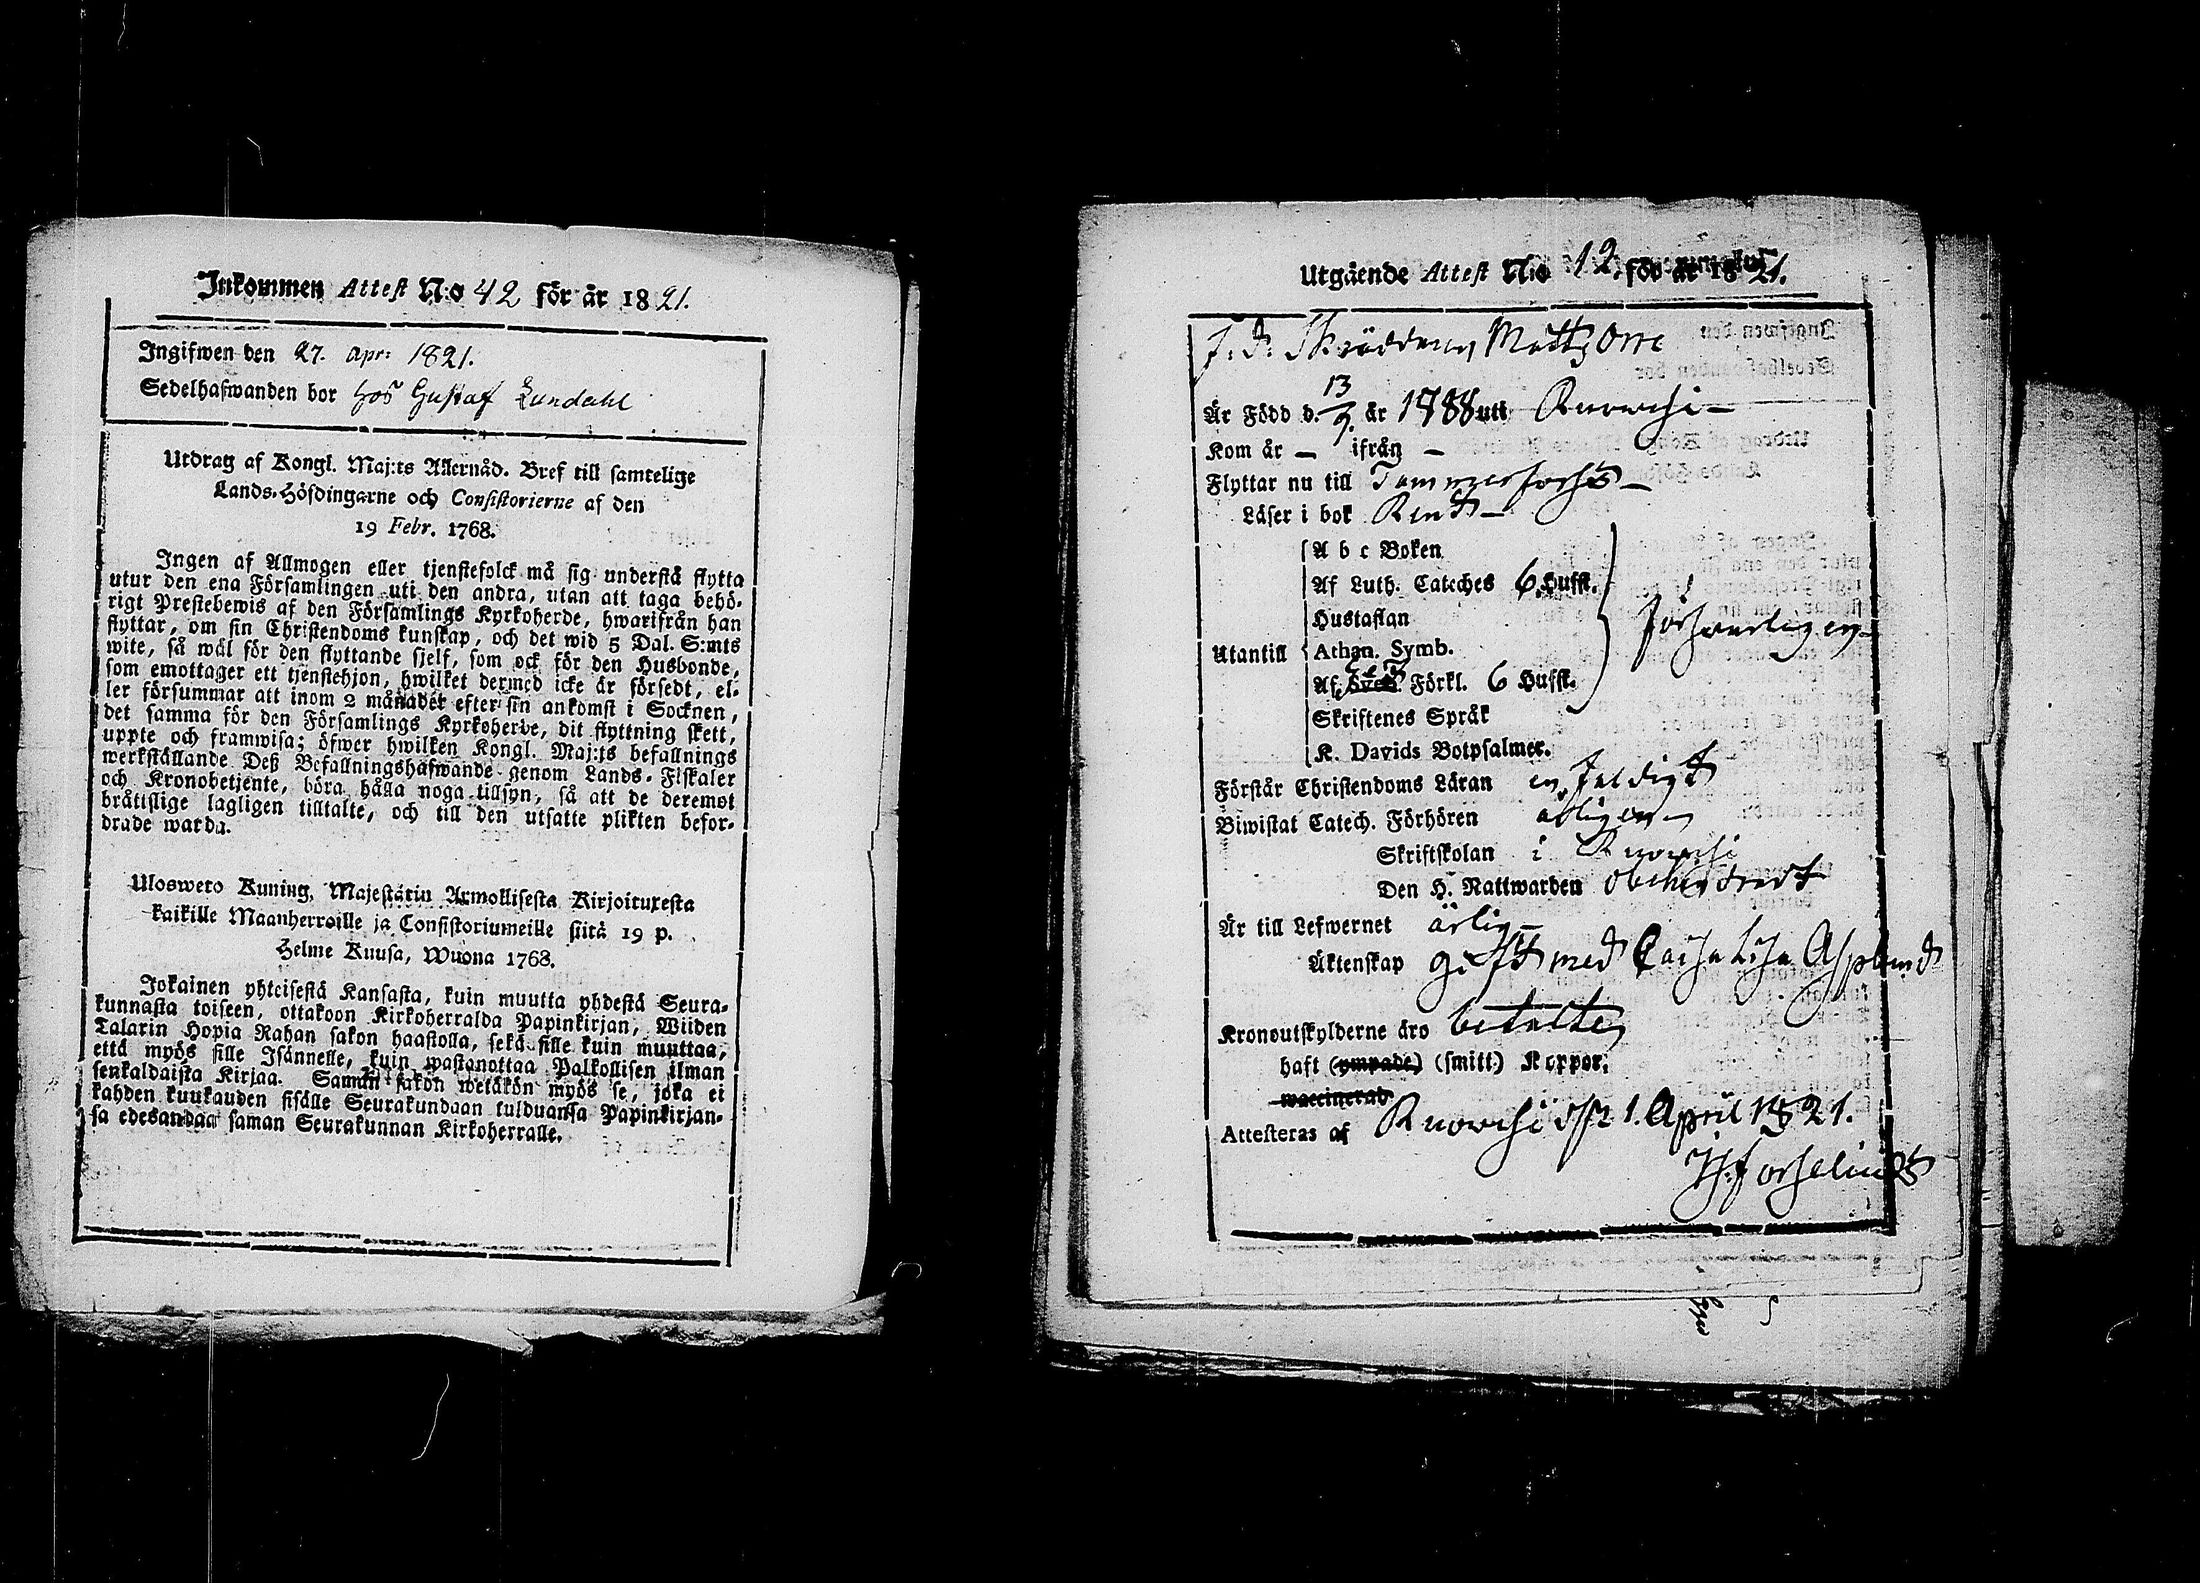 Inkommen Attest N:o 42 för år 1821.
Ingifwen den 27. Apr: 1821.
Sedelhafwanden bor hos Gustaf Lundahl
Utdrag af Kongl. Maj:ts Allernåd. Bref till samtelige
Lands-Höfdingarne och Consistorierne af den
19 Febr. 1768.
Ingen af Allmogen eller tjenstefolck må sig understå flytta
utur den ena Församlingen uti den andra, utan att taga behö-
rigt Prestebewis af den Församlings Kyrkoherde, hwarifrån han
flyttar, om sin Christendoms kunskap, och det wid 5 Dal. S:mts
wite, så wäl för den flyttande sjelf, som ock för den Husbonde,
som emottager ett tjenstehjon, hwilket dermed icke är försedt, el-
ler försummar att inom 2 månader efter sin ankomst i Socknen,
det samma för den Församlings Kyrkoherde, dit flyttning skett,
uppte och framwisa; öfwer hwilken Kongl. Maj:ts befallnings
werkställande Deß Befallningshafwande genom Lands-Fiskaler
och Kronobetjente, böra hålla noga tillsyn, så att de deremot
bråtislige lagligen tilltalte, och till den utsatte plikten befor-
drade warda.
Ulosweto Kuning. Majestätin Armollisesta Kirjoituxesta
kaikille Maanherroille ja Consistoriumeille siitä 19 p.
Helme Kuusa, Wuona 1768.
Jokainen yhteisestä Kansasta, kuin muutta yhdestä Seura-
kunnasta toiseen, ottakoon Kirkoherralda Papinkirjan, Wiiden
Talarin Hopia Rahan sakon haastolla, sekä sille kuin muuttaa,
että myös sille Isännelle, kuin wastanottaa Palkollisen ilman
senkaldaista Kirjaa. Saman sakon wetäkön myös se, joka ei
kahden kuukauden sisälle Seurakundaan tulduansa Papinkirjan-
sa edesandaa saman Seurakunnan Kirkoherralle.
Utgående Attest N:o 12. för år 1821.
f. d. Skräddaren Matts Orre
Är Född d. 13/9. år 1788 uti Ruowesi –
Kom år – ifrån –
Flyttar nu till Tammerfors –
Läser i bok Rent –
A b c Boken
Af Luth. Cateches 6 Hufst.
Hustaflan
Utantill Athan. Symb. försvarligen –
Af Sveb. Förkl. 6 Hufst.
Skriftenes Språk
K. Davids Botpsalmer.
Förstår Christendoms Läran enfaldigt
Biwistat Catech. Förhören årligen –
Skriftskolan i Ruowesi
Den H. Nattwarden obehindradt
Är till Lefwernet ärlig –
Äktenskap gift med Caisa Lisa Asplund
Kronoutskylderne äro betalte,
haft (ympade) (smitt) Koppor,
waccinerad
Attesteras af Ruowesi d. 1. April 1821.